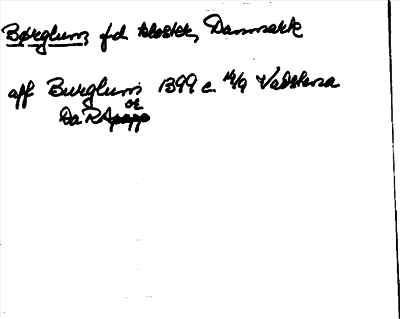 Børglum, fd kloster, Danmark
aff Burglum 1399 c. 14/9 Vadstena
or
Da R